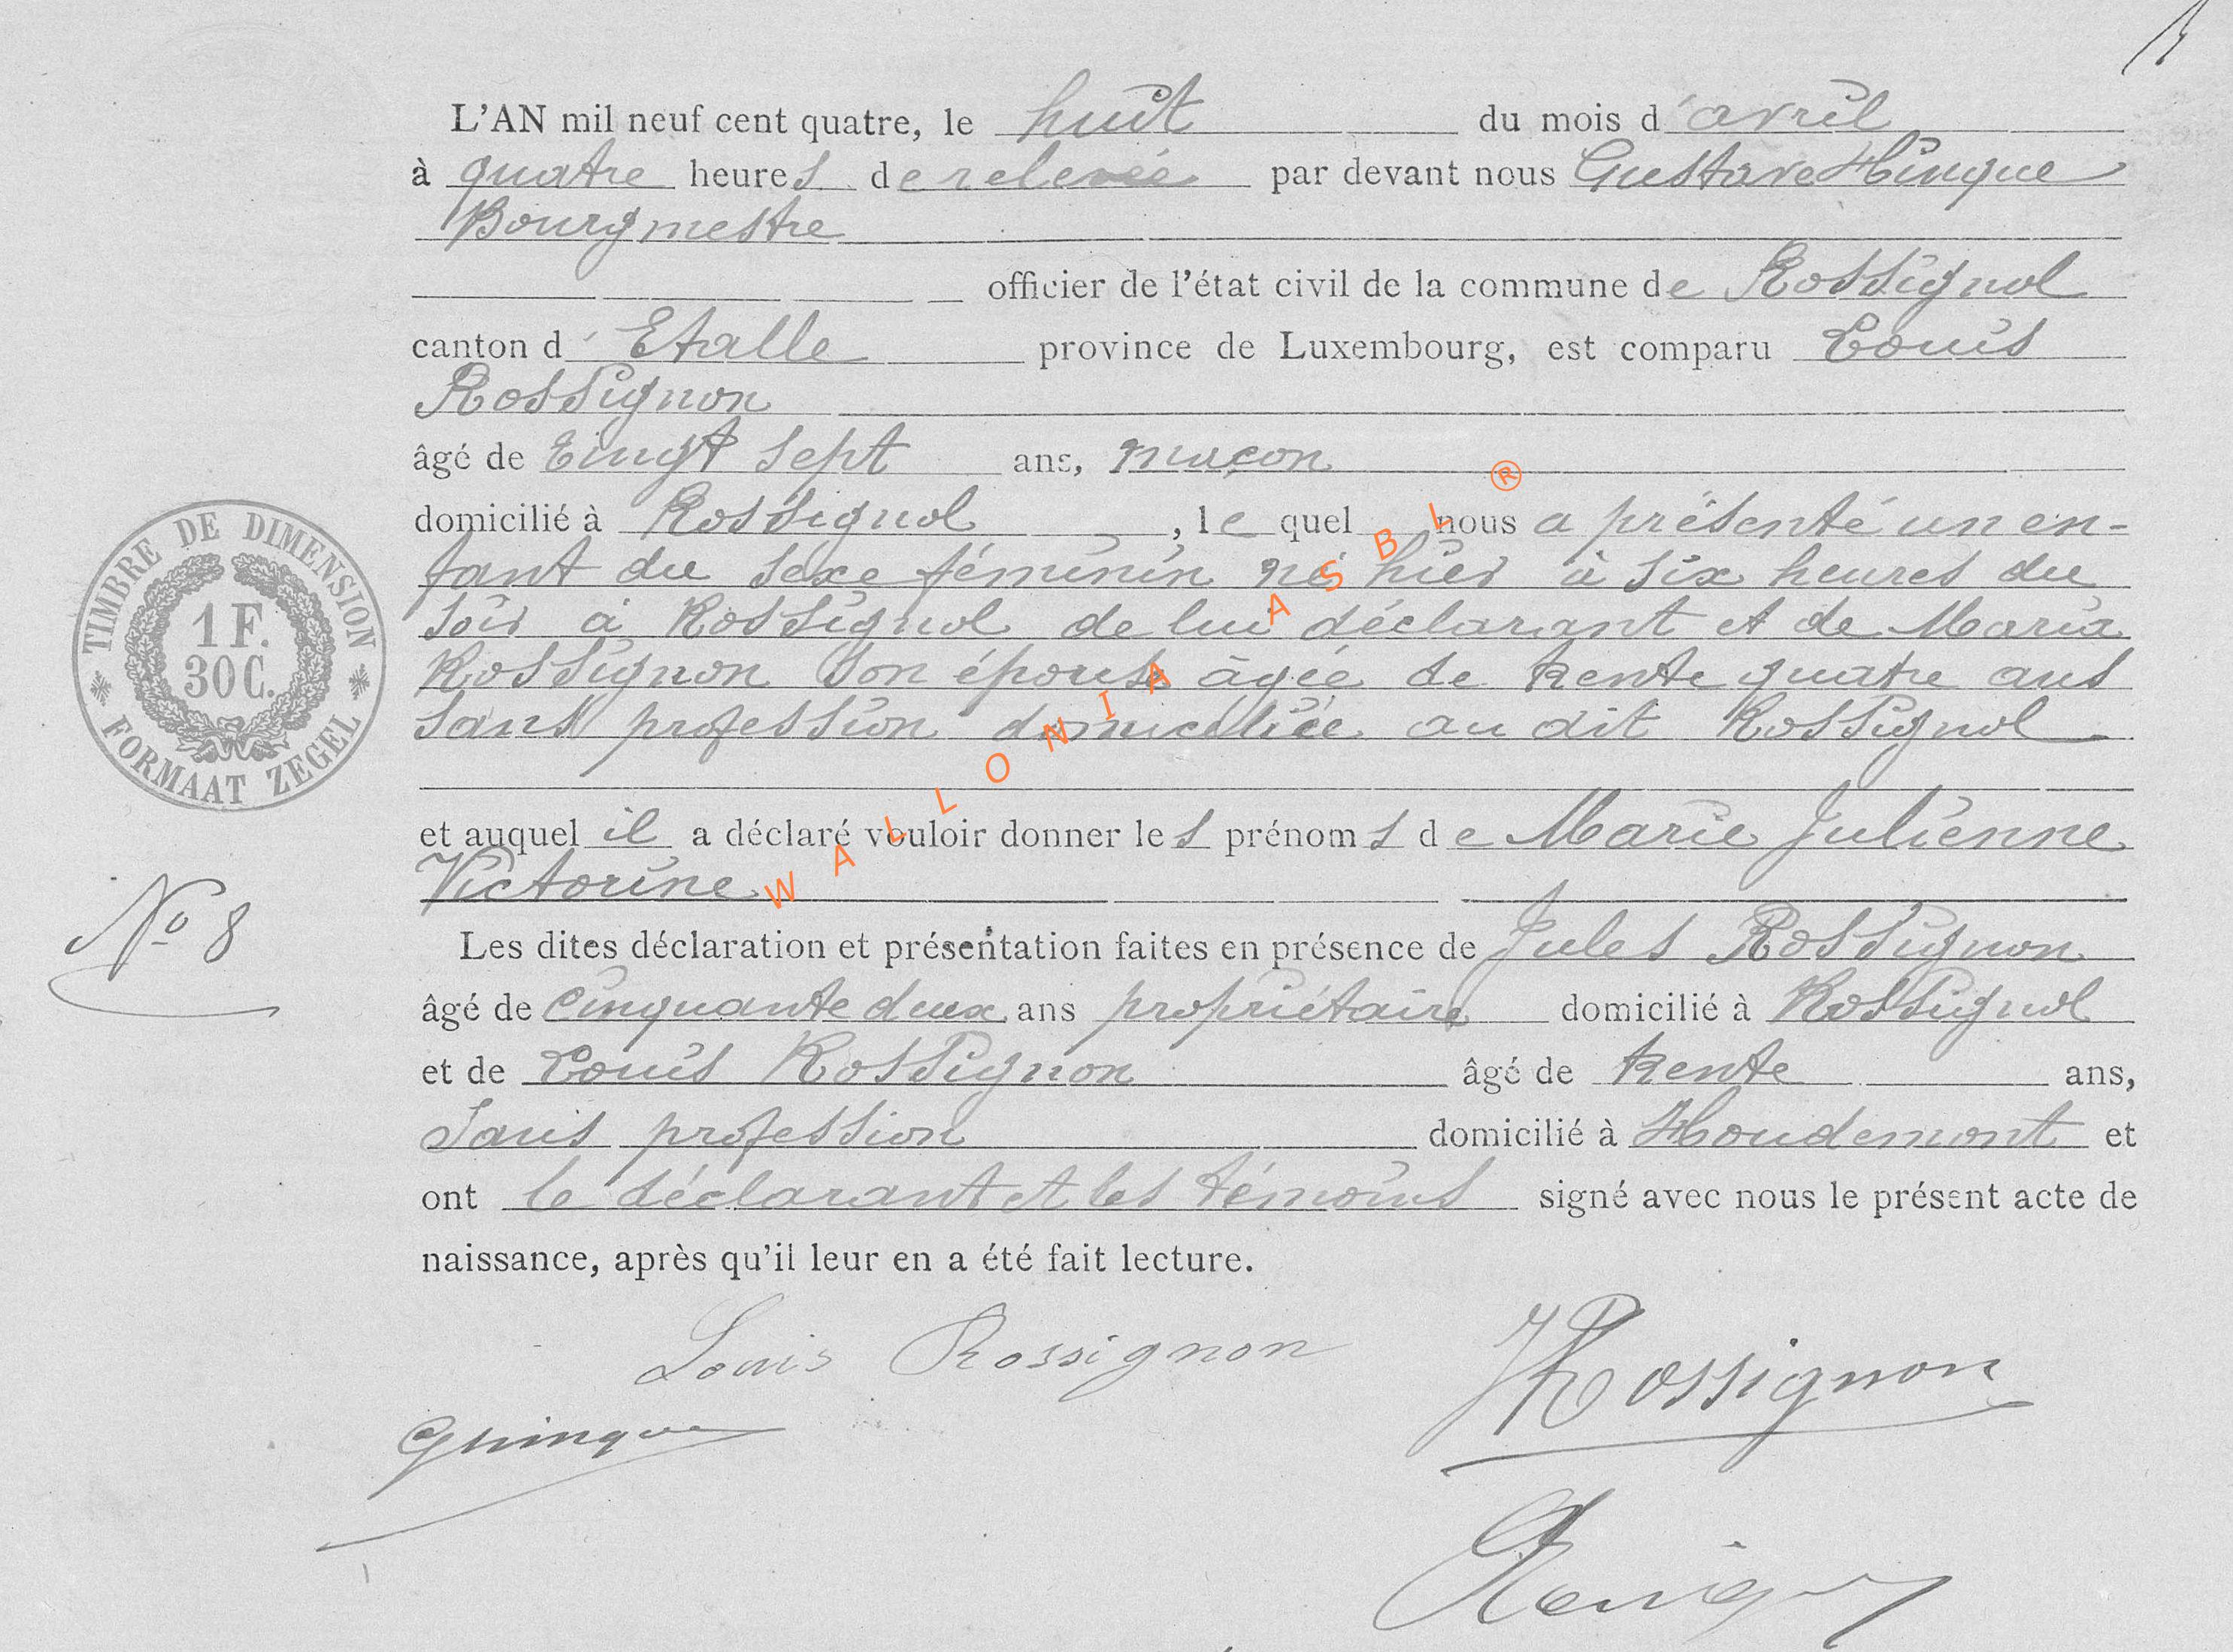 L'AN mil neuf cent quatre, le huit du mois d'avril
à quatre heures de relevée par devant nous Gustave Hinque
Bourgmestre
officier de l'état civil de la commune de Rossignol
canton d'Etalle province de Luxembourg, est comparu Louis
Rossignon
âgé de vingt sept ans, maçon
domicilié à Rossignol, lequel nous a présenté un en-
fant du sexe féminin né hier à six heures du
soir à Rossignol de lui déclarant et de Maria
Rossignon son épouse âgée de trente quatre ans
sans profession domiciliée au dit Rossignol
et auquel il a déclaré vouloir donner les prénoms de Marie Julienne
Victorine
Les dites déclaration et présentation faites en présence de Jules Rossignon
âgé de cinquante deux ans propriétaire domicilié à Rossignol
et de Louis Rossignon âgé de trente ans,
sans profession domicilié à Houdemont et
ont le déclarant et les témoins signé avec nous le présent acte de
naissance, après qu'il leur en a été fait lecture.
TIMBRE DE DIMENSION
1 F.
30 C.
FORMAAT ZEGEL
No 8
Louis Rossignon
JRossignon
GHinque
WALLONIA ASBL ®